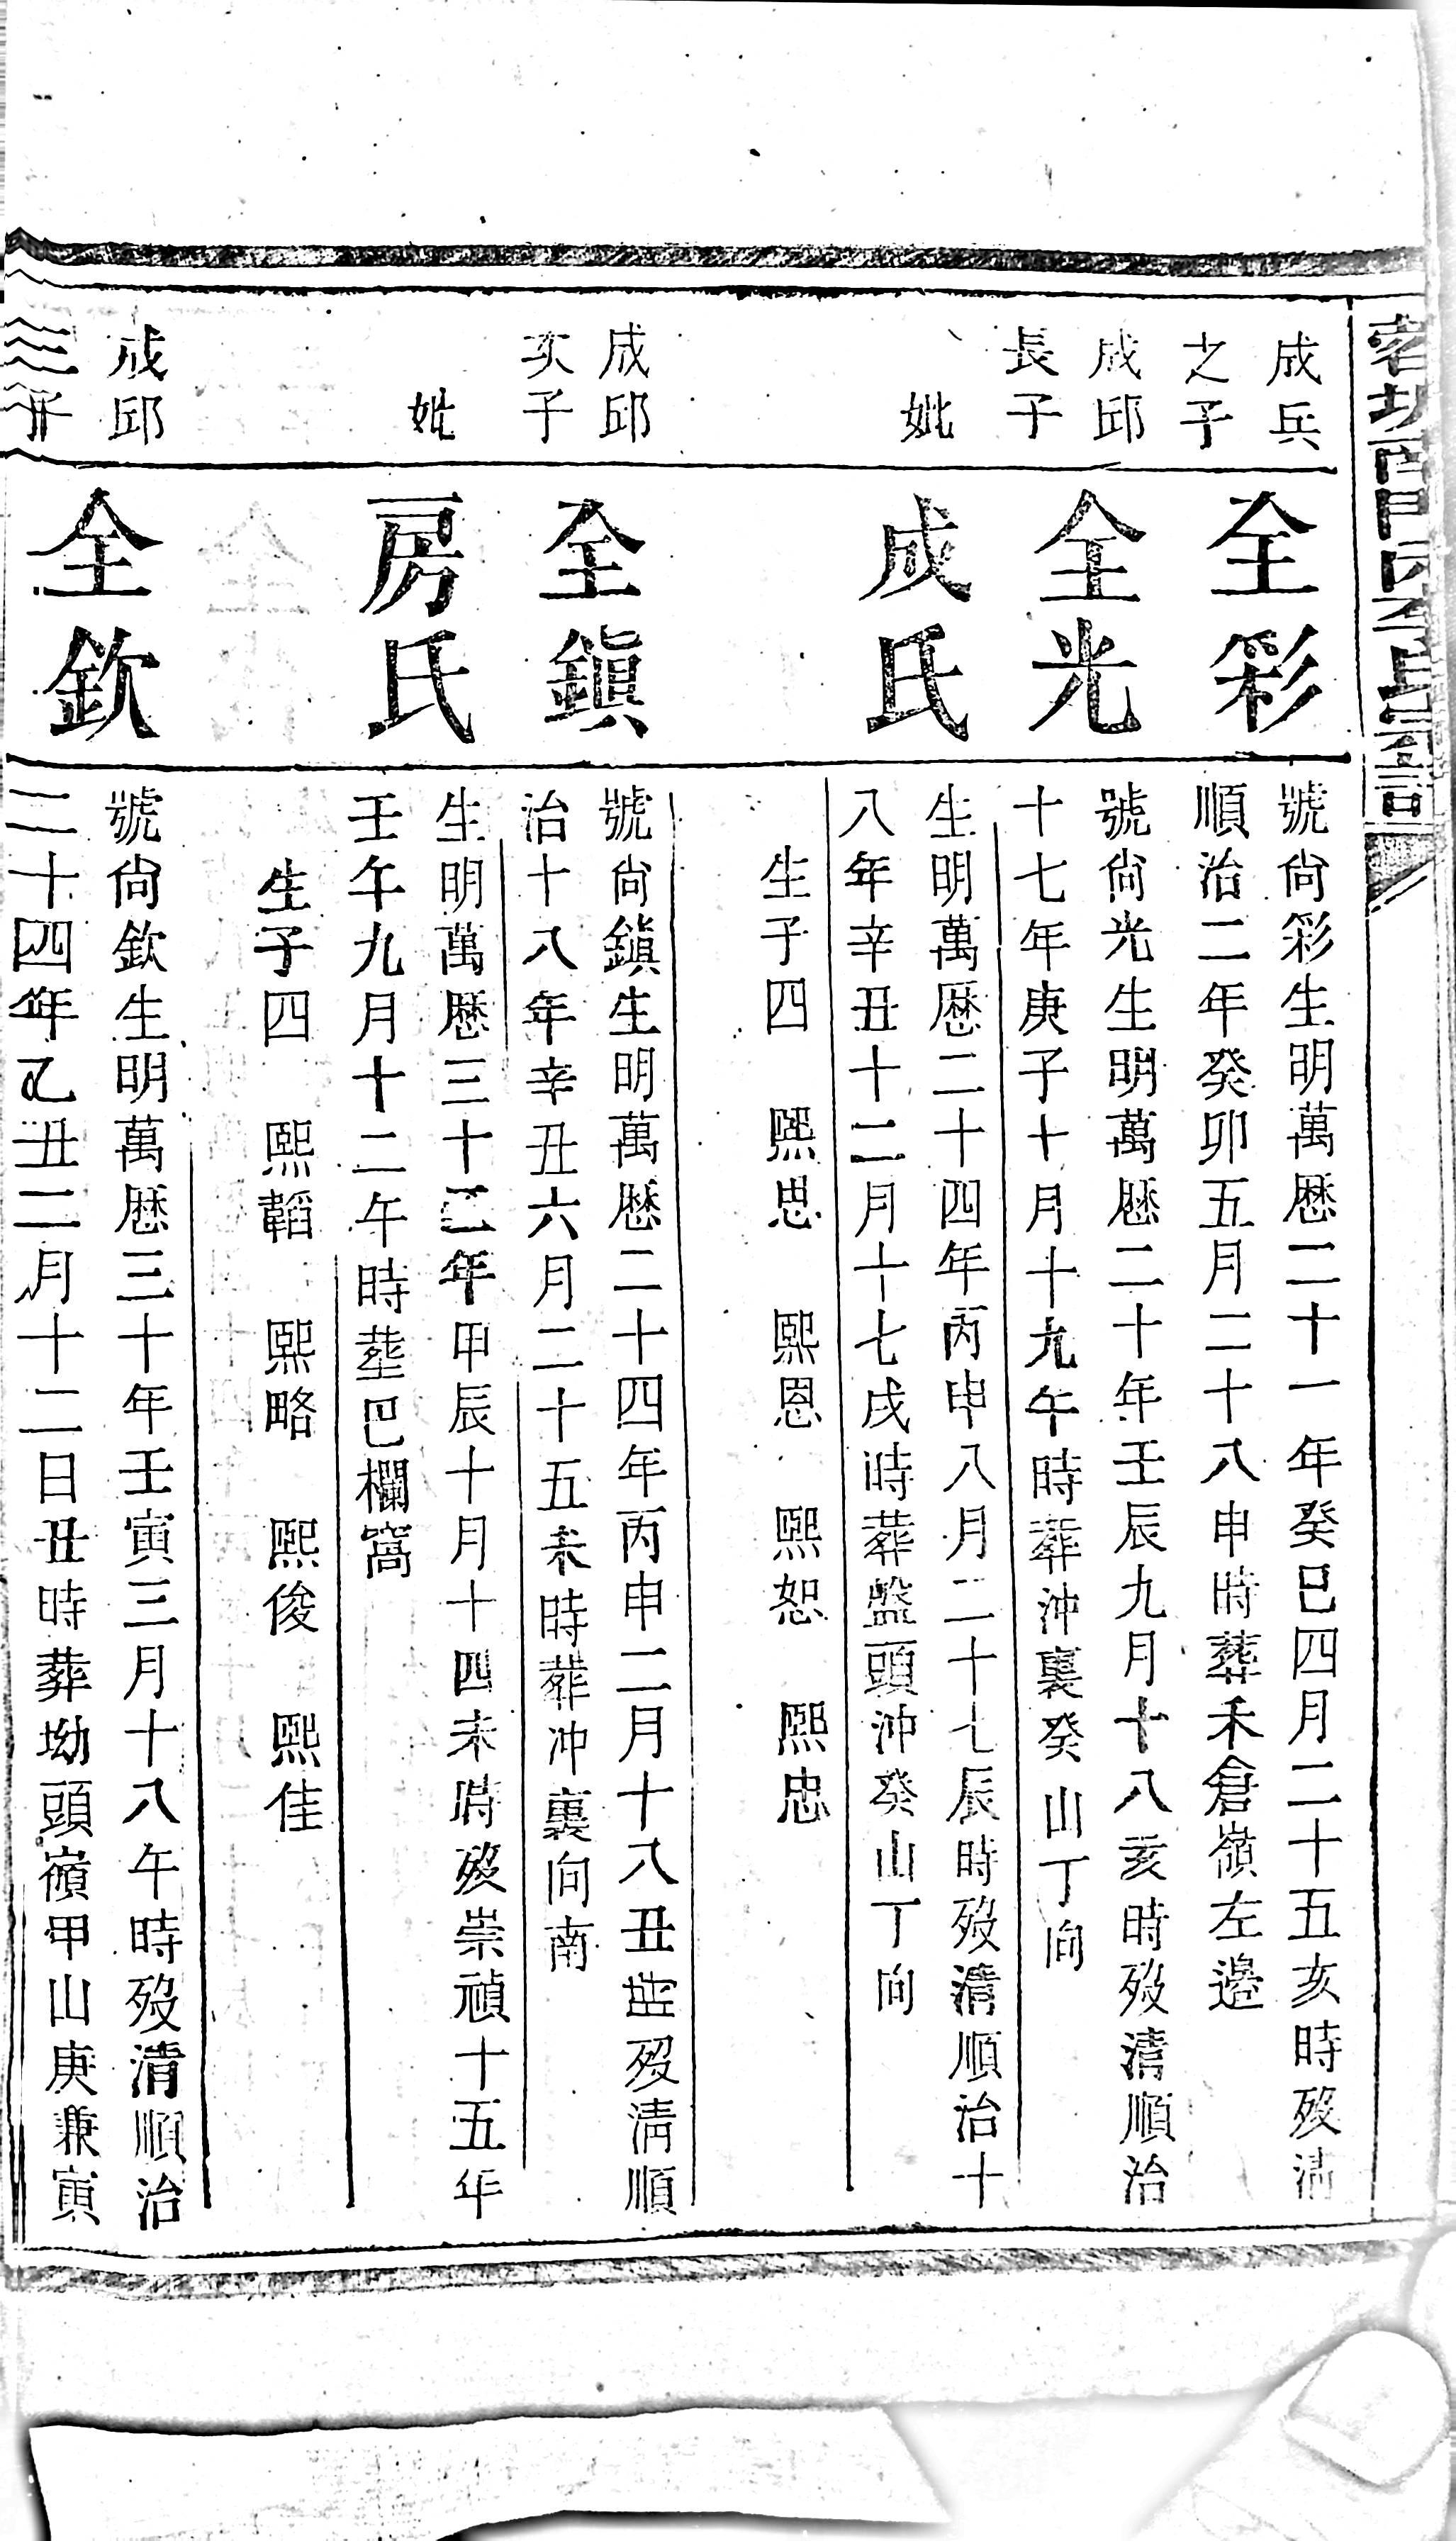 南門房李氏宗譜
成兵
之子
全彩
號尙彩生明萬曆二十一年癸巳四月二十五亥時歿清
順治二年癸卯五月二十八申時葬禾倉嶺左邉
成邱
長子
全光
號尙光生明萬曆二十年壬辰九月十八亥時歿清順治
十七年庚子十月十九午時葬沖裏癸山丁向
妣
成氏
生明萬曆二十四年丙申八月二十七辰時歿清順治十
八年辛丑十二月十七戌時葬盤頭沖癸山丁向
生子四 熙思 熙恩 熙恕 熙忠
成邱
次子
全鎭
號尙鎭生明萬曆二十四年丙申二月十八丑時歿清順
治十八年辛丑六月二十五未時葬沖裏向南
妣
房氏
生明萬曆三十二年甲辰十月十四未時歿崇禎十五年
壬午九月十二午時塟巴欄窩
生子四 熙韜 熙略 熙俊 熙佳
成邱
三子
全欽
號尙欽生明萬曆三十年壬寅三月十八午時歿清順治
二十四年乙丑二月十二日丑時葬坳頭嶺甲山庚兼寅